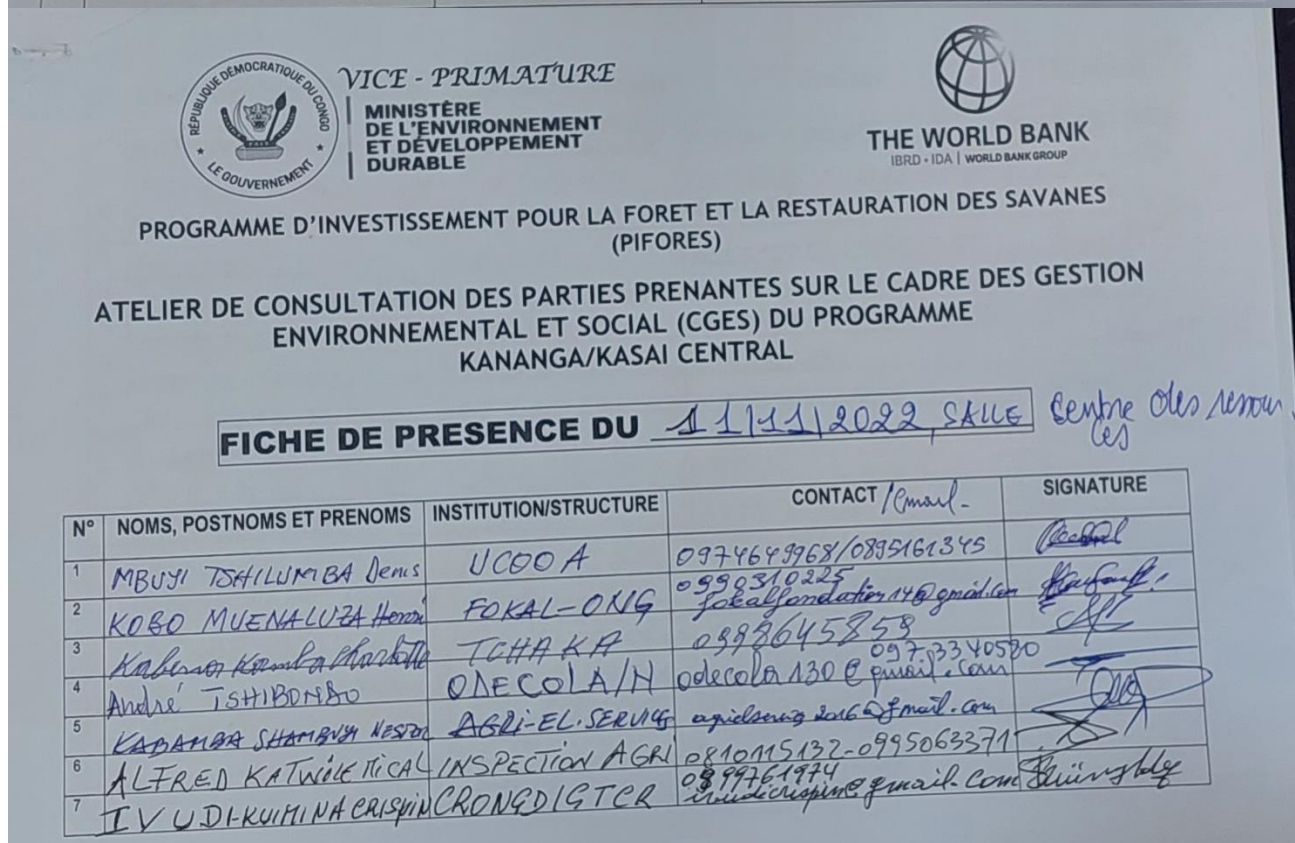 RÉPUBLIQUE DÉMOCRATIQUE DU CONGO
LE GOUVERNEMENT
VICE - PRIMATURE
MINISTÈRE
DE L'ENVIRONNEMENT
ET DÉVELOPPEMENT
DURABLE
THE WORLD BANK
IBRD • IDA | WORLD BANK GROUP
PROGRAMME D'INVESTISSEMENT POUR LA FORET ET LA RESTAURATION DES SAVANES
(PIFORES)
ATELIER DE CONSULTATION DES PARTIES PRENANTES SUR LE CADRE DES GESTION
ENVIRONNEMENTAL ET SOCIAL (CGES) DU PROGRAMME
KANANGA/KASAI CENTRAL
FICHE DE PRESENCE DU 11/11/2022, SALLE Centre des ressources
N° NOMS, POSTNOMS ET PRENOMS INSTITUTION/STRUCTURE CONTACT /Email- SIGNATURE
1 MBUYI TSHILUMBA Denis UCOOA 0974649968/0895161345
2 KOBO MUENALUZA Henri FOKAL-ONG 0990310225 fokalfondation14@gmail.com
3 Kabena Kamba Charlotte TCHAKA 0998645859
4 André TSHIBOMBO ODECOLA/N 0973340580 odecola130@gmail.com
5 KABAMBA SHAMBUYI NESTOR AGRI-EL.SERVICE
6 ALFRED KATWOLE INSPECTION AGRI 0810115132-0995063371
7 IVUDI-KUIMINA CRISPIN CRONGDIGTCR 0899761974 ivudicrispin@gmail.com